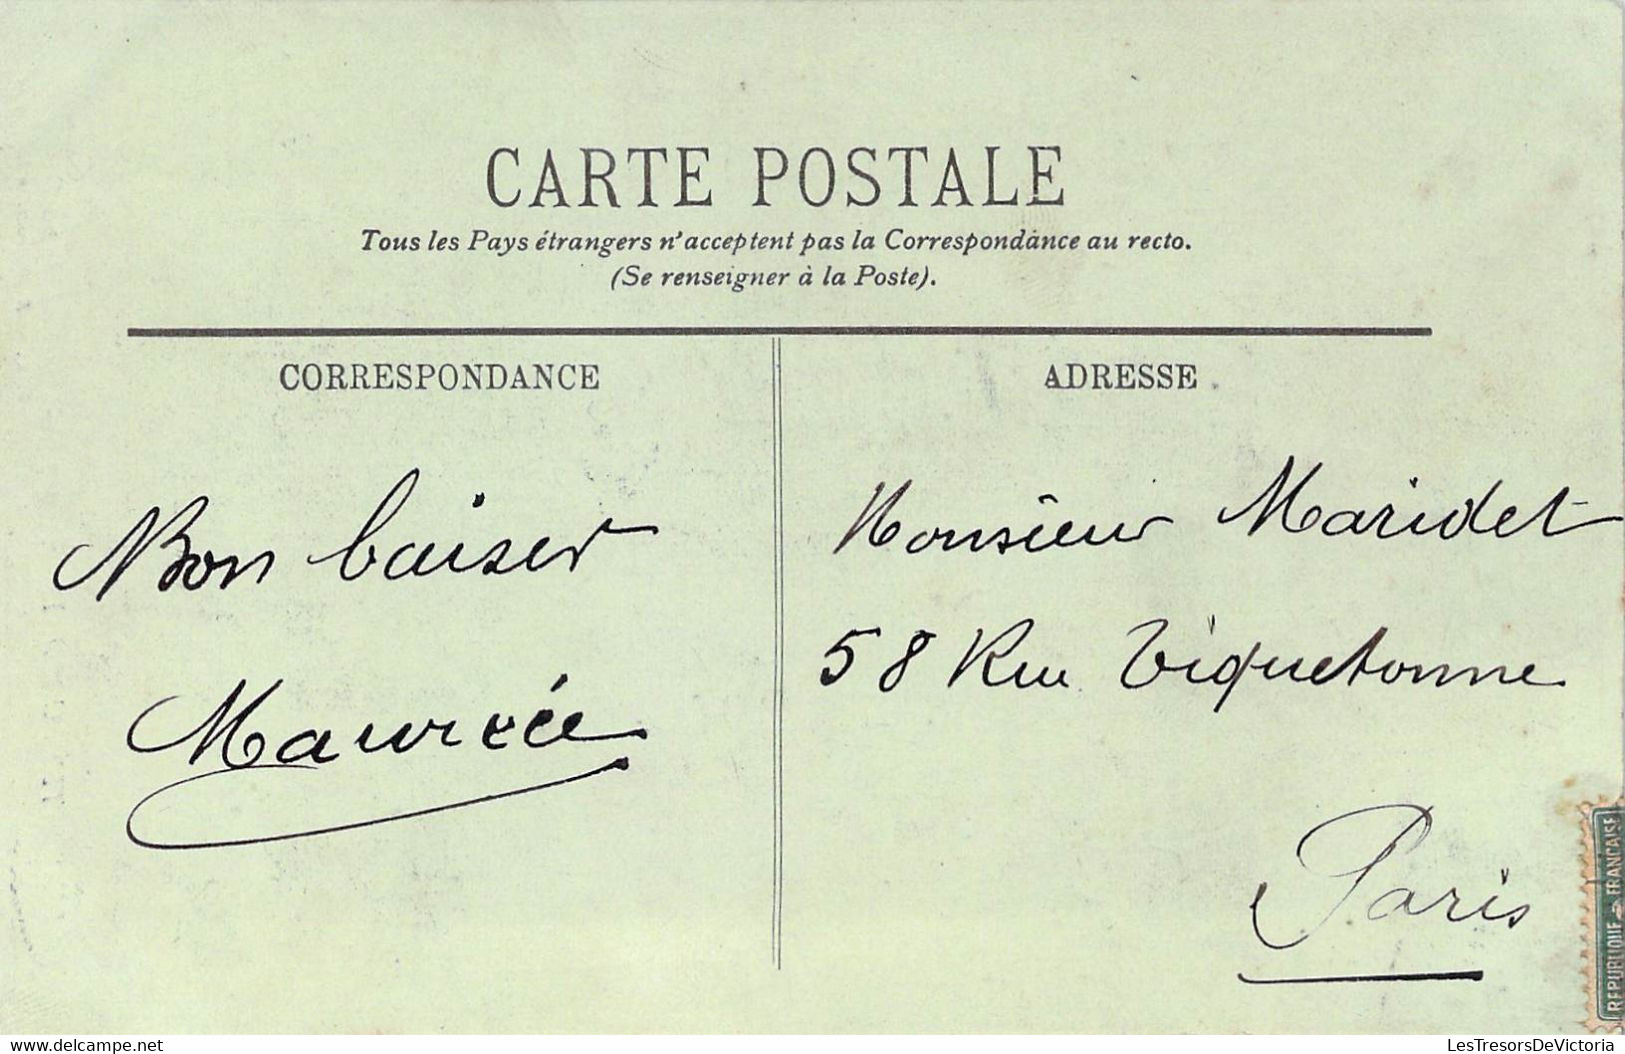 CARTE POSTALE
Tous les Pays étrangers n'acceptent pas la Correspondance au recto.
(Se renseigner à la Poste).
CORRESPONDANCE
Bon baiser
ADRESSE
Monsieur Maridet
58 Rue Tiquetonne
Paris
REPUBLIQUE FRANCAISE
delcampe.net
LesTresorsDeVictoria